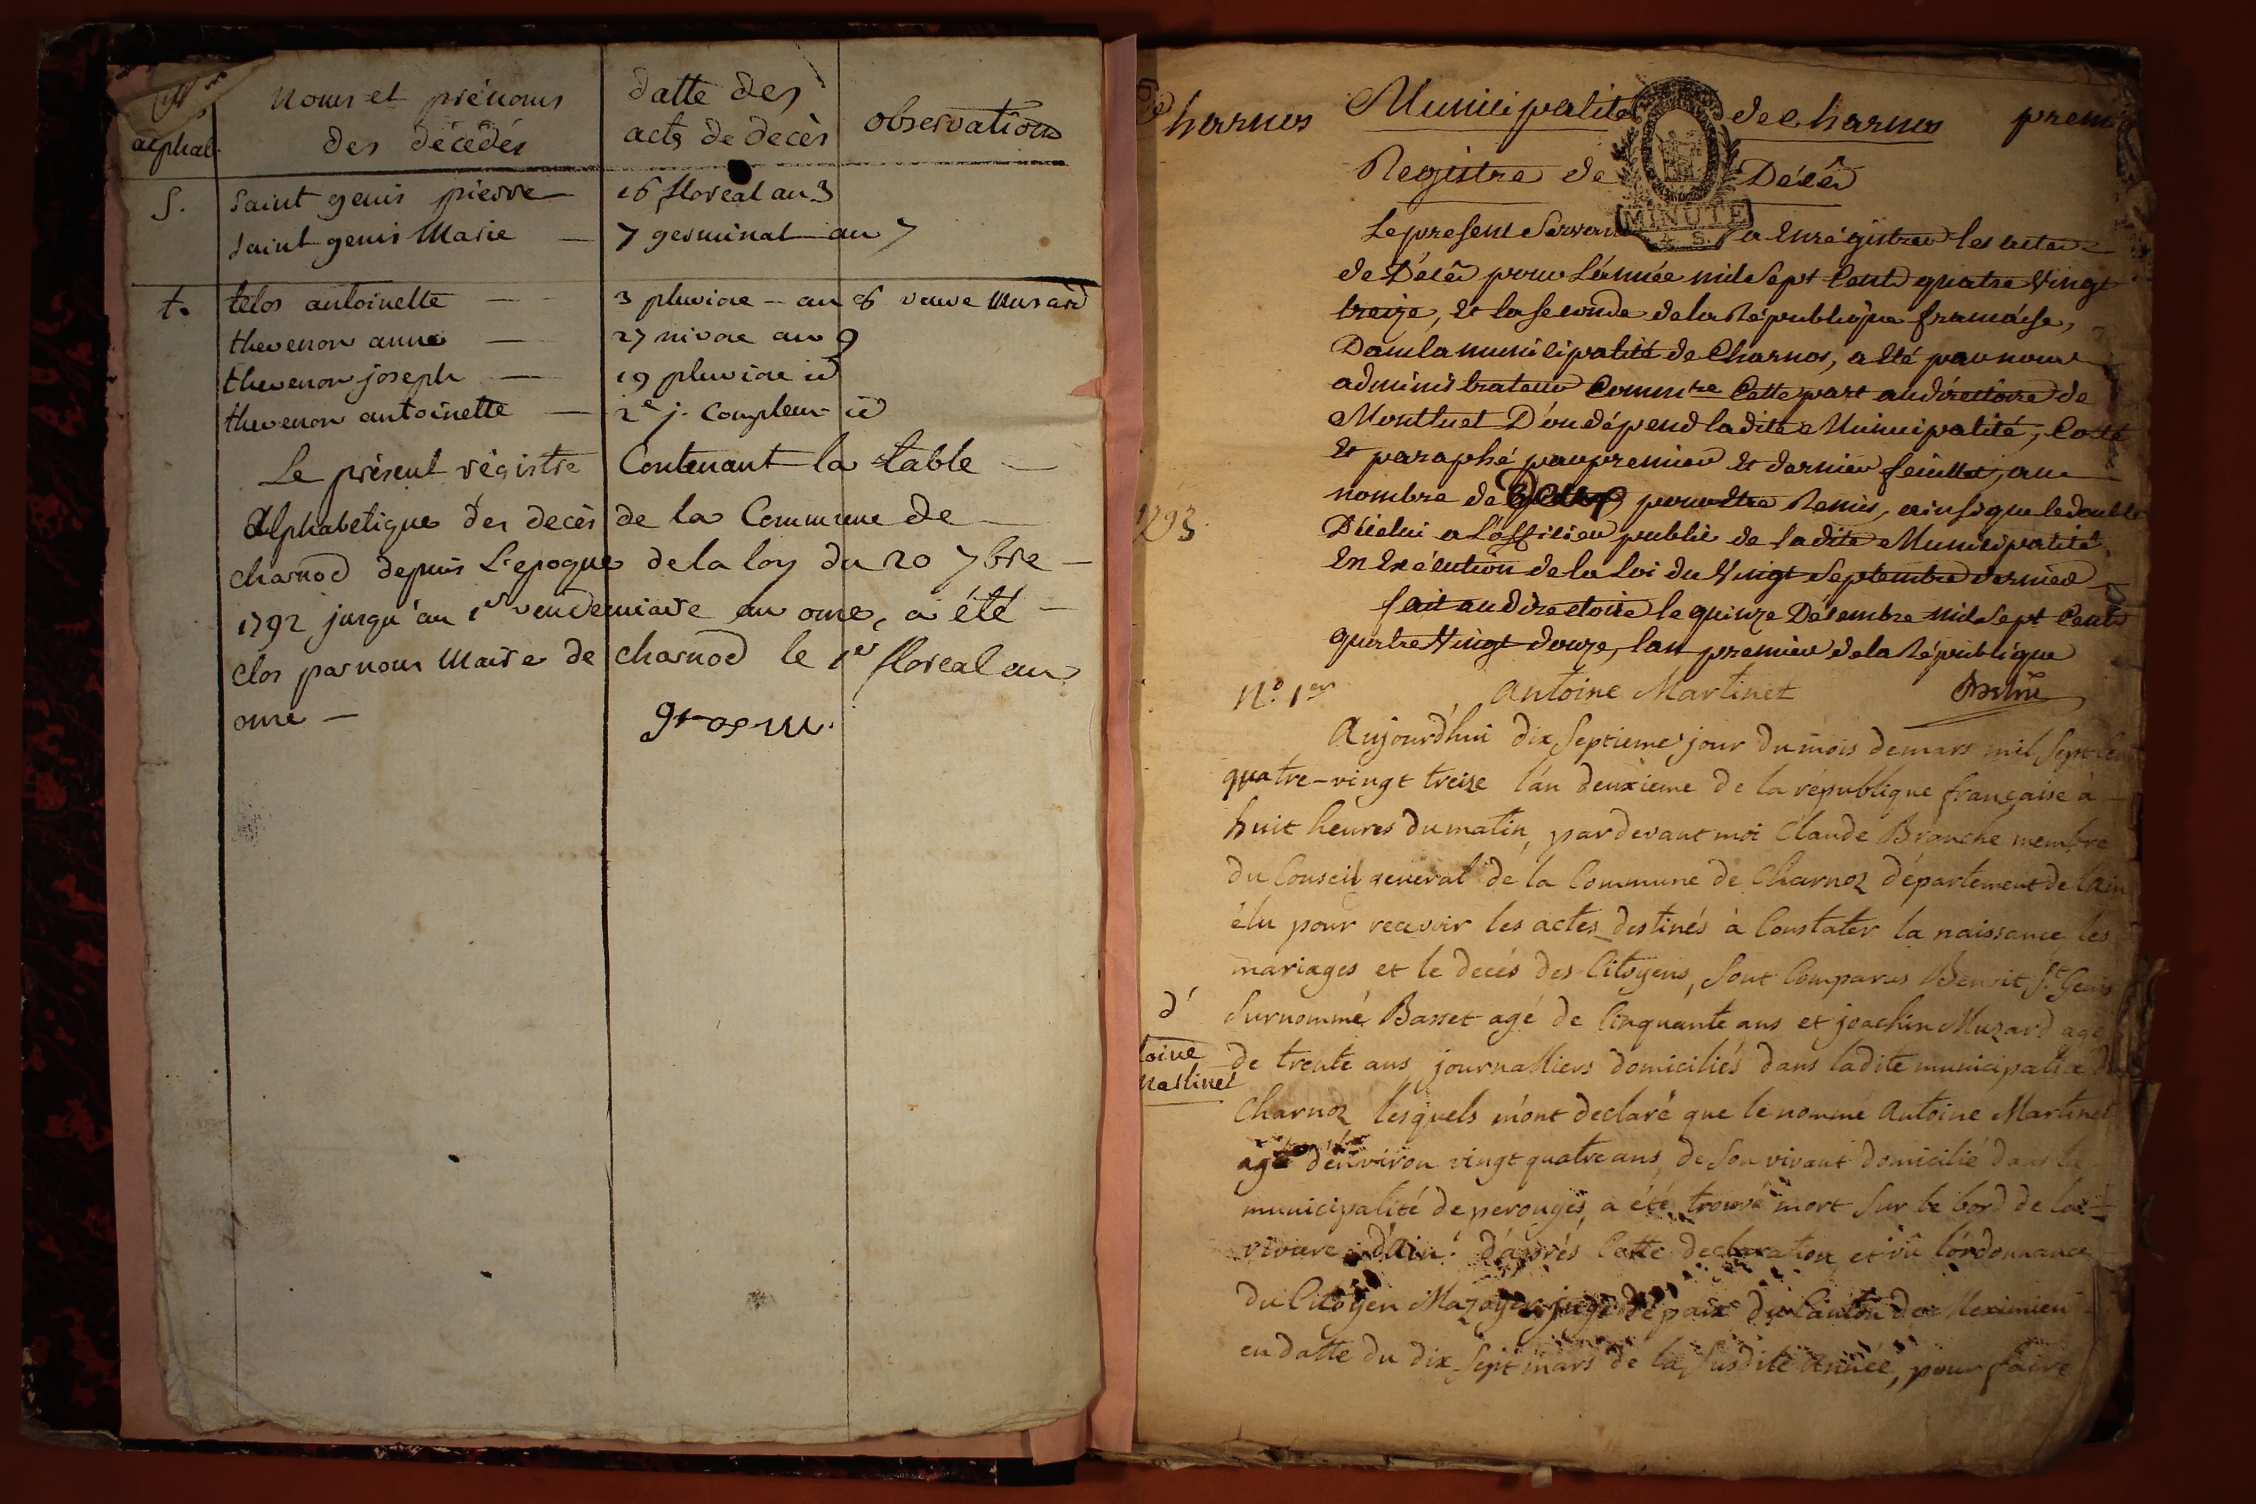 alphab.
Noms et prénoms
des décédés
datte des
acts de decès
observations
S.
saint genis pierre — 16 floreal an 3
saint genis Marie — 7 germinal an 7
t.
telos antoinette — 3 pluviose — an 6 veuve Musard
thevenon anne — 27 nivose an 9
thevenon joseph — 19 pluviose id
thevenon antoinette — 2e j. Complem id
Le présent régistre Contenant la table —
Alphabetique des decès de la Commune de —
charnod depuis L'epoque de la loy du 20 7bre —
1792 jusqu'au 1er vendemiaire an onze, a été —
clos par nous Maire de charnod le 1er floreal an
onze —
gros m.
De Charnos
Municipalité de Charnos
prem
Registre de Décès
MINUTE
4. S.
Le present Servant a Enrégistrer les actes
de Décès pour L'année mil Sept Cent quatre Vingt
treize, Et la seconde de la République française,
Dans la municipalité de Charnos, a Eté par nous
administrateur Commre Cette part au directoire de
Montluel D'ou dépend ladite Municipalité, Cotté
Et paraphé par premier Et dernier feuillet, au
nombre de pour Etre Remis, ainsi que le double
D'icelui a L'officier public de ladite Municipalité,
En Exécution de la Loi du Vingt Septembre dernier
fait au directoire le quinze Décembre mil Sept Cent
quatre Vingt douze, l'an premier de la République
1793
N.o 1er
Antoine Martinet
Aujourd'hui dix Septieme jour du mois de mars mil Sept Cent
quatre-vingt treize l'an deuxieme de la république française à —
huit heures du matin, par devant moi Claude Branche membre
du Conseil general de la Commune de Charnoz département de l'ain
élu pour recevoir les actes destinés à Constater la naissance les
mariages et le decés des Citoyens, Sont Comparus Benoit St Genis
Surnommé Basset agé de Cinquante ans et joachin Muzard agé
de trente ans journalliers domiciliés dans ladite municipalité de
Charnoz lesquels m'ont declaré que le nommé Antoine Martinet
agé d'environ vingt quatre ans, de Son vivant domicilié dans la
municipalité de perouges, a été trouvé mort Sur le bord de la
riviere d'Ain. d'après Cette declaration et vû l'ordonnance
du Citoyen Mazoyer juge de paix du Canton de Meximieu
en datte du dix Sept mars de la Susdite Année, pour faire
d'
toine
Martinet